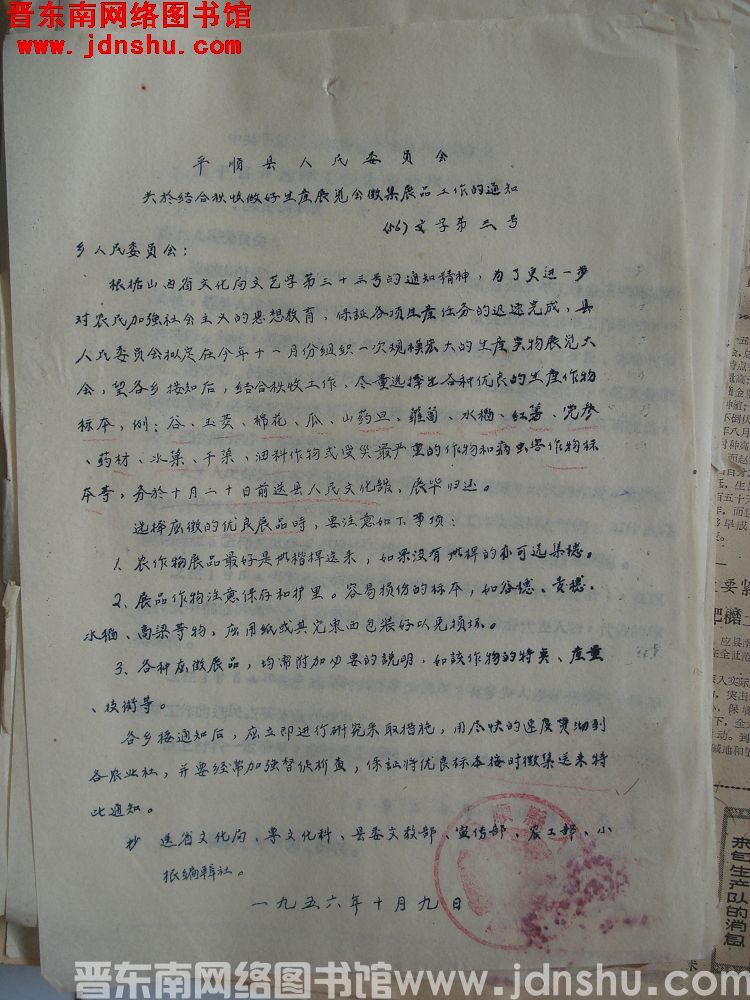 晋东南网络图书馆
www.jdnshu.com
平顺县人民委员会
关於结合秋收做好生产展览会徵集展品工作的通知
(56)文字第三号
乡人民委员会：
根据山西省文化局文艺字第三十三号的通知精神，为了更进一步
对农民加强社会主义的思想教育，保証各项生産任务的迅速完成，县
人民委员会拟定在今年十一月份组织一次规模宏大的生産实物展览大
会，望各乡接知后，结合秋收工作，尽量选择出各种优良的生産作物
标本，例：谷、玉茭、棉花、瓜、山药旦、蘿蔔、水稻、红薯、党参
、药材、水菓、干菓、油料作物或受災最严重的作物和病虫害作物标
本等，务於十月二十日前送县人民文化舘，展毕归还。
选择应徵的优良展品時，要注意如下事项：
1、农作物展品最好是帶楷桿送来，如果没有帶桿的亦可选集穗。
2、展品作物注意保存和护理。容易损伤的标本，如谷穗、黄穗、
水稻、高梁等物，应用纸或其它東西包装好以免损坏。
3、各种应徵展品，均需附加必要的説明，如該作物的特类、産量
、技術等。
各乡接通知后，应立即进行研究采取措施，用尽快的速度贯彻到
各农业社，并要经常加强督促检查，保証将优良标本按时徵集送来特
此通知。
抄 送省文化局、専文化科、县委文教部、宣传部、农工部、小
报编輯社。
一九五六年十月九日
东旬生产队的消息
晋东南网络图书馆 www.jdnshu.com